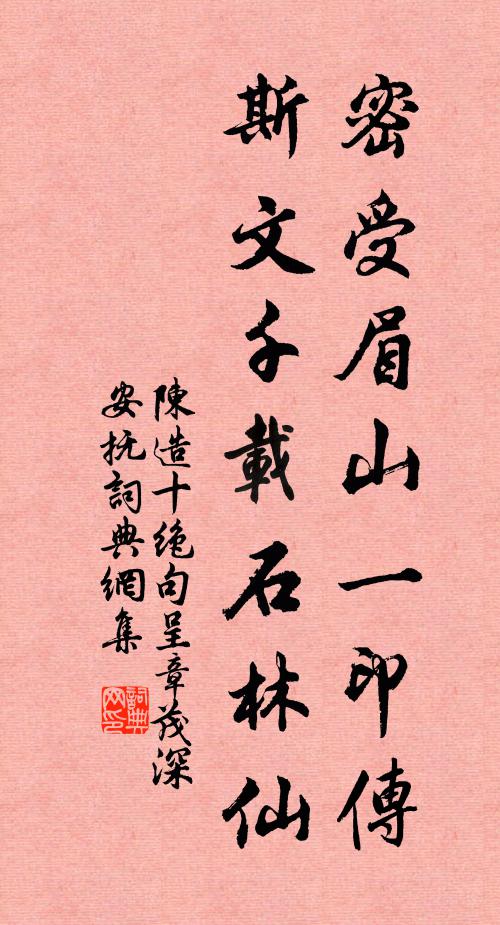 密受眉山一印傳
斯文千載石林仙
陳造十絶句呈章茂深
安抚詞典網集
詞典網印